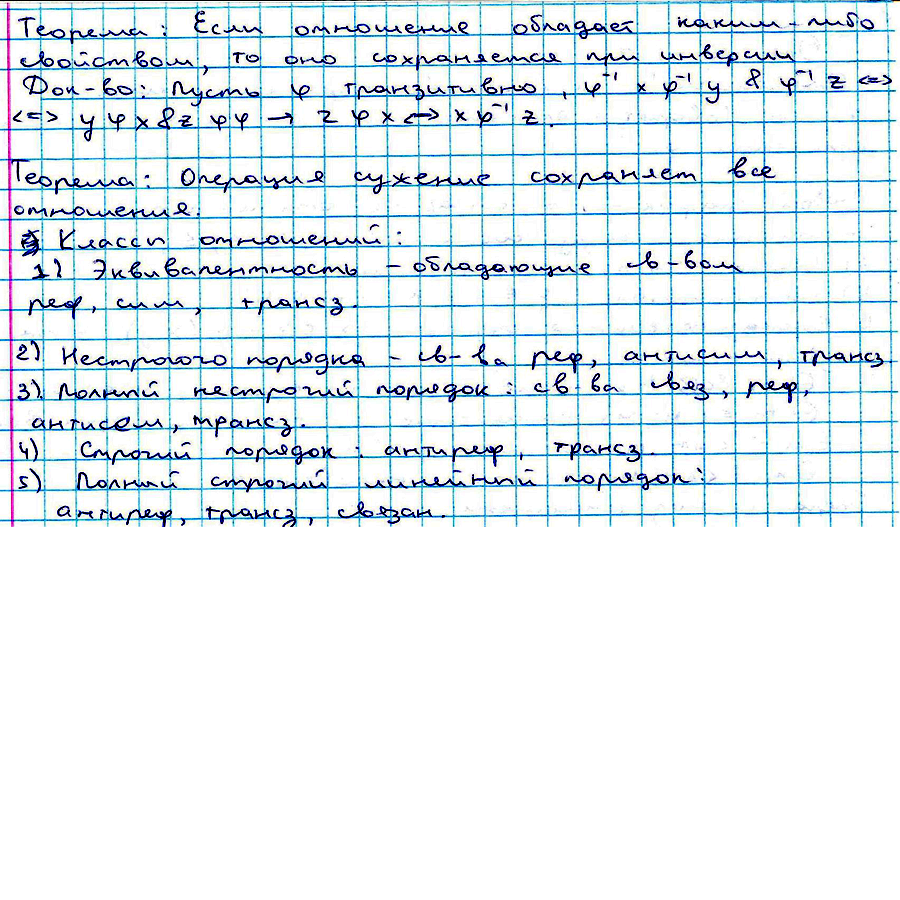 Теорема: Если отношение обладает каким-либо
свойством, то оно сохраняется при инверсии
Док-во: Пусть φ транзитивно, φ⁻¹ x φ⁻¹ y & φ⁻¹ z <=>
<=> y φ x & z φ φ → z φ x <-> x φ⁻¹ z.
Теорема: Операция сужение сохраняет все
отношения.
Классы отношений:
1) Эквивалентность - обладающие св-вом
реф, сим, транз.
2) Нестрогого порядка - св-ва реф, антисим, транз
3) Полный нестрогий порядок: св-ва связ, реф,
антисем, транз.
4) Строгий порядок: антиреф, транз.
5) Полный строгий линейный порядок:
антиреф, транз, связан.